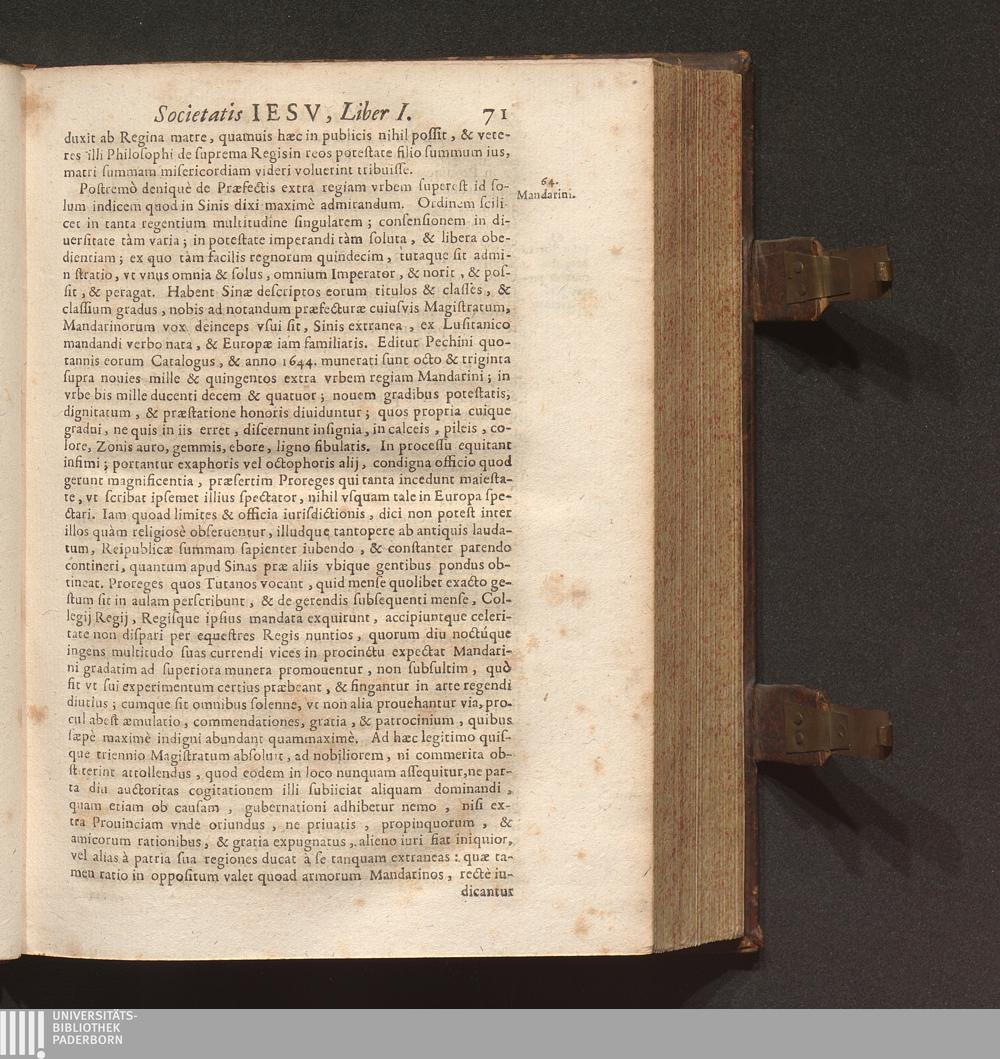 Societatis IESV, Liber I. 71
duxit ab Regina matre, quamuis hæc in publicis nihil possit, & vete-
res illi Philosophi de suprema Regis in reos potestate filio summum ius,
matri summam misericordiam videri voluerint tribuisse.
Postremò deniquè de Præfectis extra regiam vrbem superest id so-
lum indicem quod in Sinis dixi maximè admirandum. Ordinem scili-
64.
Mandarini.
cet in tanta regentium multitudine singularem; consensionem in di-
uersitate tàm varia; in potestate imperandi tàm soluta, & libera obe-
dientiam; ex quo tàm facilis regnorum quindecim, tutaque sit admi-
nistratio, vt vnus omnia & solus, omnium Imperator, & norit, & pos-
sit, & peragat. Habent Sinæ descriptos eorum titulos & classes, &
classium gradus, nobis ad notandum præfecturæ cuiusvis Magistratum,
Mandarinorum vox deinceps vsui sit, Sinis extranea, ex Lusitanico
mandandi verbo nata, & Europæ iam familiaris. Editur Pechini quo-
tannis eorum Catalogus, & anno 1644. munerati sunt octo & triginta
supra nouies mille & quingentos extra vrbem regiam Mandarini; in
vrbe bis mille ducenti decem & quatuor; nouem gradibus potestatis,
dignitatum, & præstatione honoris diuiduntur; quos propria cuique
gradui, ne quis in iis erret, discernunt insignia, in calceis, pileis, co-
lore, Zonis auro, gemmis, ebore, ligno fibulatis. In processu equitant
infimi; portantur exaphoris vel octophoris alij, condigna officio quod
gerunt magnificentia, præsertim Proreges qui tanta incedunt maiesta-
te, vt scribat ipsemet illius spectator, nihil vsquam tale in Europa spe-
ctari. Iam quoad limites & officia iurisdictionis, dici non potest inter
illos quàm religiosè obseruentur, illudque tantopere ab antiquis lauda-
tum, Reipublicæ summam sapienter iubendo, & constanter parendo
contineri, quantum apud Sinas præ aliis vbique gentibus pondus ob-
tineat. Proreges quos Tutanos vocant, quid mense quolibet exacto ge-
stum sit in aulam perscribunt, & de gerendis subsequenti mense, Col-
legij Regij, Regisque ipsius mandata exquirunt, accipiuntque celeri-
tate non dispari per equestres Regis nuntios, quorum diu noctúque
ingens multitudo suas currendi vices in procinctu expectat Mandari-
ni gradatim ad superiora munera promouentur, non subsultim, quò
fit vt sui experimentum certius præbeant, & fingantur in arte regendi
diutius; cumque sit omnibus solenne, vt non alia prouehantur via, pro-
cul abest æmulatio, commendationes, gratia, & patrocinium, quibus
sæpè maximè indigni abundant quammaximè. Ad hæc legitimo quis-
que triennio Magistratum absoluit, ad nobiliorem, ni commerita ob-
stiterint attollendus, quod eodem in loco nunquam assequitur, ne par-
ta diu auctoritas cogitationem illi subiiciat aliquam dominandi,
quam etiam ob causam, gubernationi adhibetur nemo, nisi ex-
tra Prouinciam vnde oriundus, ne priuatis, propinquorum, &
amicorum rationibus, & gratia expugnatus, alieno iuri fiat iniquior,
vel alias à patria sua regiones ducat à se tanquam extraneas: quæ ta-
men ratio in oppositum valet quoad armorum Mandarinos, rectè iu-
dicantur
UNIVERSITÄTS-
BIBLIOTHEK
PADERBORN